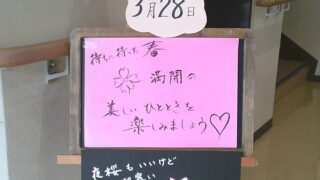 3月28日
待ちに待った春
満開の
美しいひとときを
楽しみましょう♡
夜桜もいいけど